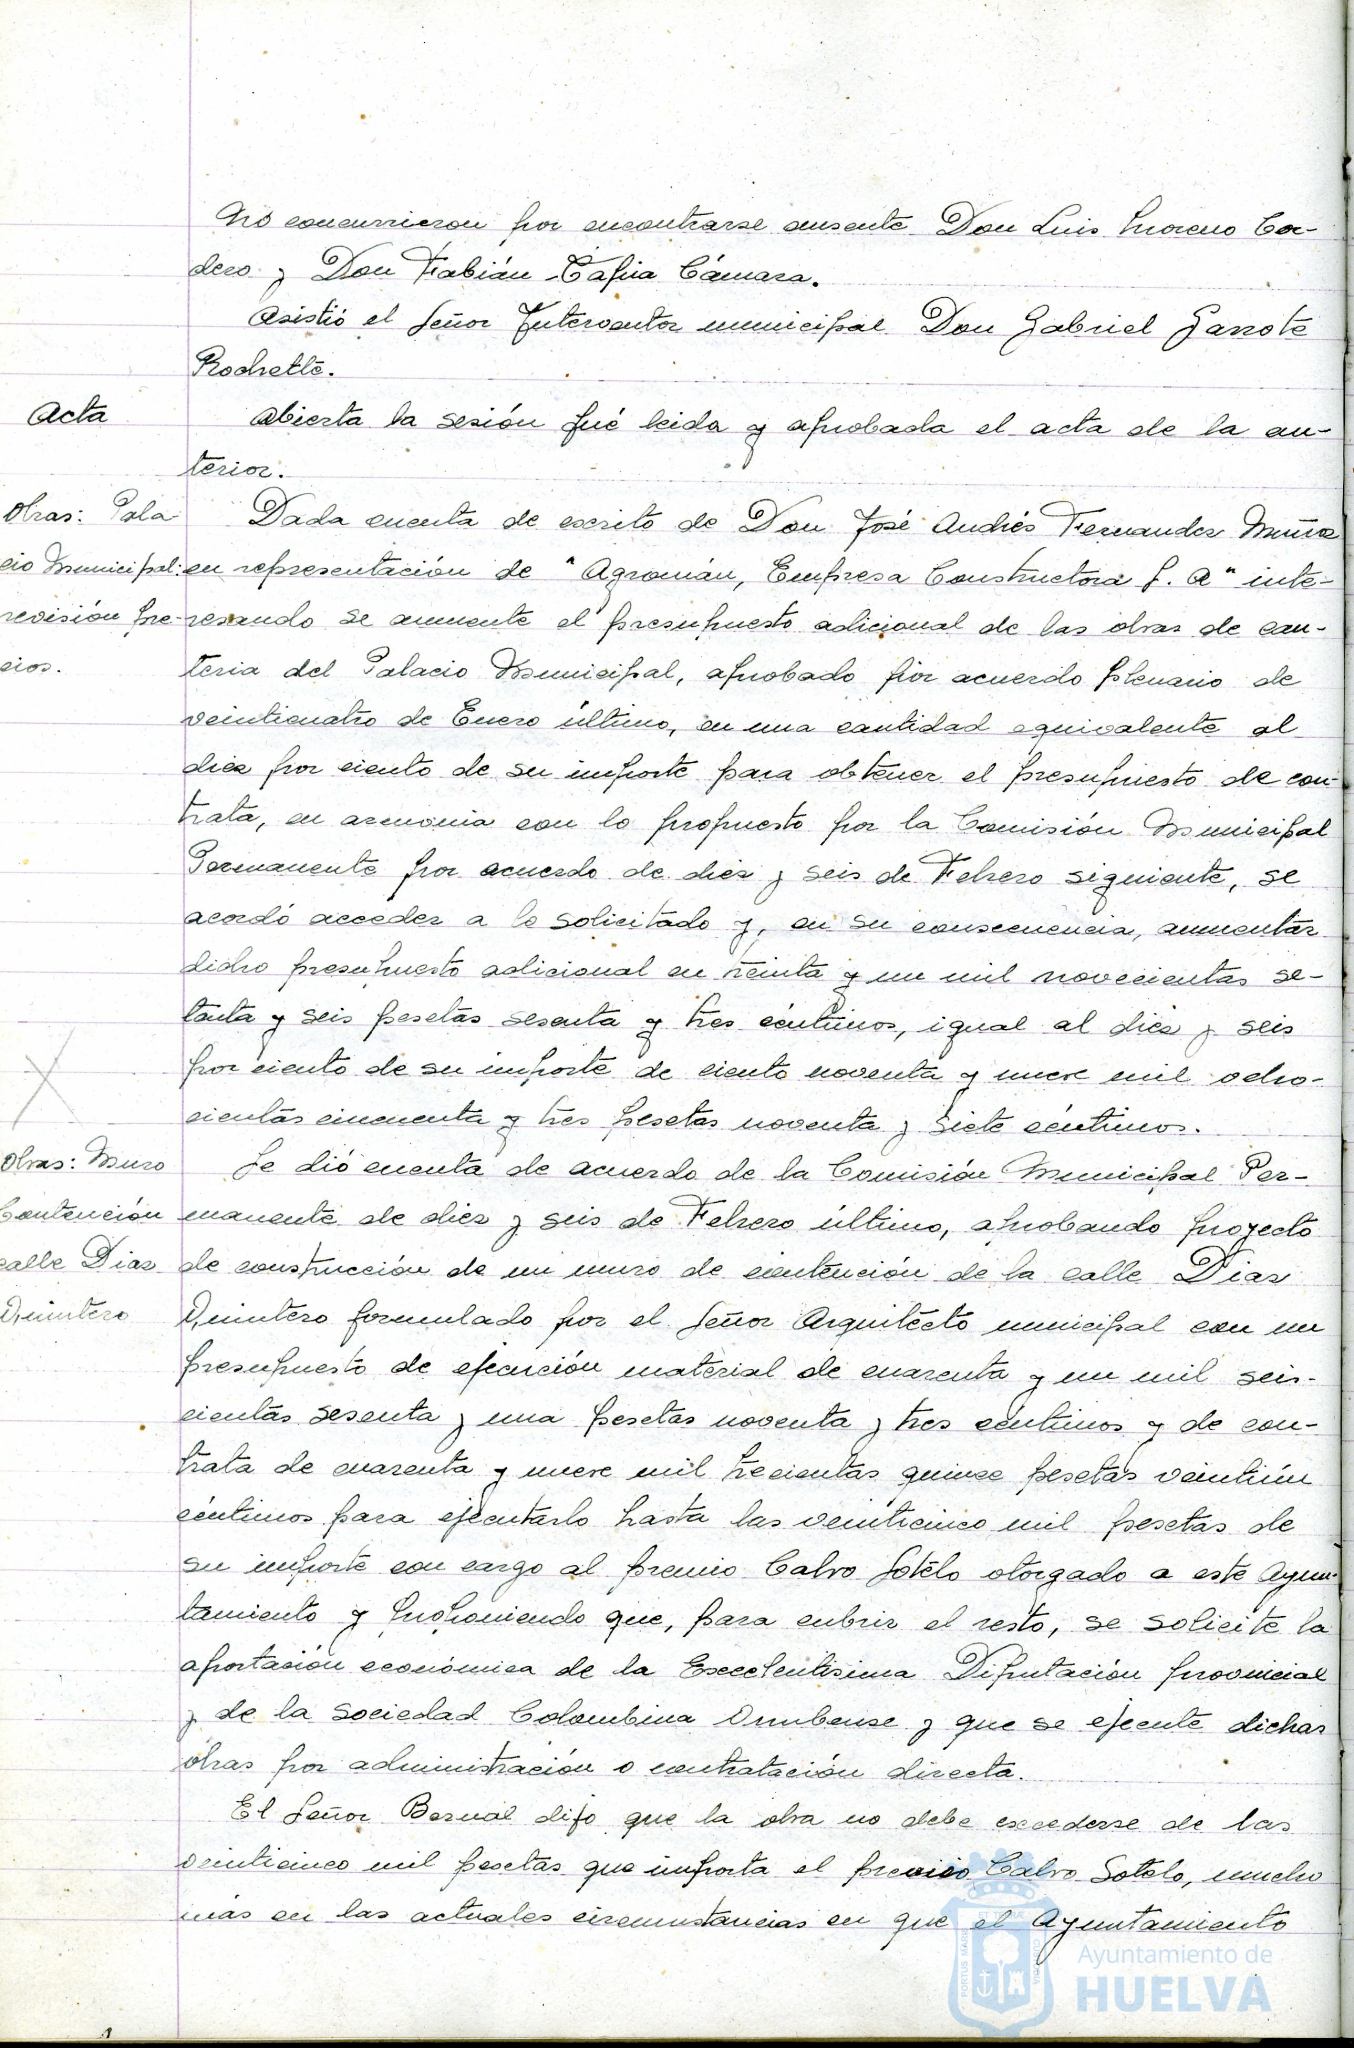 No concurrieron por encontrarse ausente Don Luis Moreno Cor-
dero y Don Fabián Tapia Cámara.
Asistió el Señor Interventor municipal Don Gabriel Garrote
Rochette.
Acta
Abierta la sesión fué leida y aprobada el acta de la an-
terior.
Obras: Pala
cio Municipal:
revisión pre-
cios.
Dada cuenta de escrito de Don José Andrés Fernandez Muñoz
en representación de "Agromán, Empresa Constructora S. A" inte-
resando se aumente el presupuesto adicional de las obras de can-
teria del Palacio Municipal, aprobado por acuerdo plenario de
veinticuatro de Enero último, en una cantidad equivalente al
diez por ciento de su importe para obtener el presupuesto de con-
trata, en armonia con lo propuesto por la Comisión Municipal
Permanente por acuerdo de diez y seis de Febrero siguiente, se
acordó acceder a lo solicitado y, en su consecuencia, aumentar
dicho presupuesto adicional en treinta y un mil novecientas se-
tenta y seis pesetas sesenta y tres céntimos, igual al diez y seis
por ciento de su importe de ciento noventa y nueve mil ocho-
cientas cincuenta y tres pesetas noventa y siete céntimos.
Obras: Muro
Contención
calle Diaz
Quintero
Se dió cuenta de acuerdo de la Comisión Municipal Per-
manente de diez y seis de Febrero último, aprobando proyecto
de construcción de un muro de contención de la calle Diaz
Quintero formulado por el Señor Arquitecto municipal con un
presupuesto de ejecución material de cuarenta y un mil seis-
cientas sesenta y una pesetas noventa y tres céntimos y de con-
trata de cuarenta y nueve mil trecientas quince pesetas veintiún
céntimos para ejecutarlo hasta las veinticinco mil pesetas de
su importe con cargo al premio Calvo Sotelo otorgado a este Ayun-
tamiento y proponiendo que, para cubrir el resto, se solicite la
aportación económica de la Excelentisima Diputación provincial
y de la Sociedad Colombina Onubense y que se ejecute dichas
obras por administración o contratación directa.
El Señor Bernal dijo que la obra no debe excederse de las
veinticinco mil pesetas que importa el premio Calvo Sotelo, mucho
más en las actuales circunstancias en que el Ayuntamiento
Ayuntamiento de
HUELVA